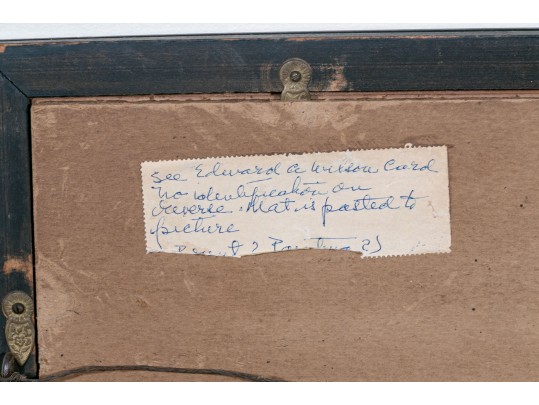 See Edward A Wilson Card
No identification on
reverse. Mat is pasted to
picture
Print? Painting?)